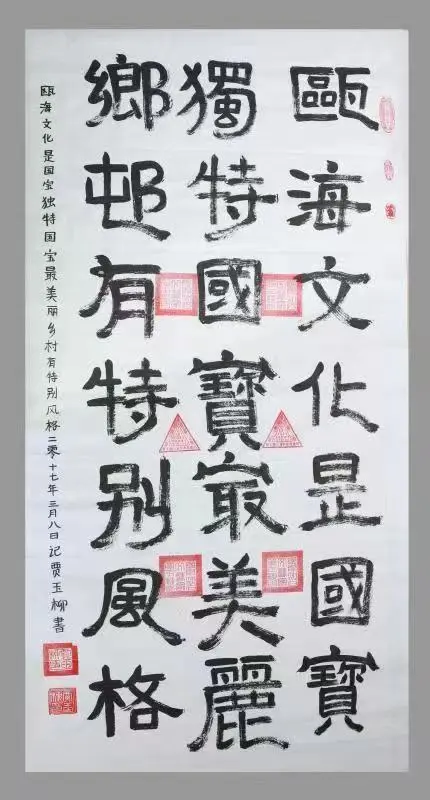 甌海文化是國寶
獨特國寶最美麗
鄉邨有特别風格
瓯海文化是国宝独特国宝最美丽乡村有特别风格二零十七年三月八日记贾玉柳書